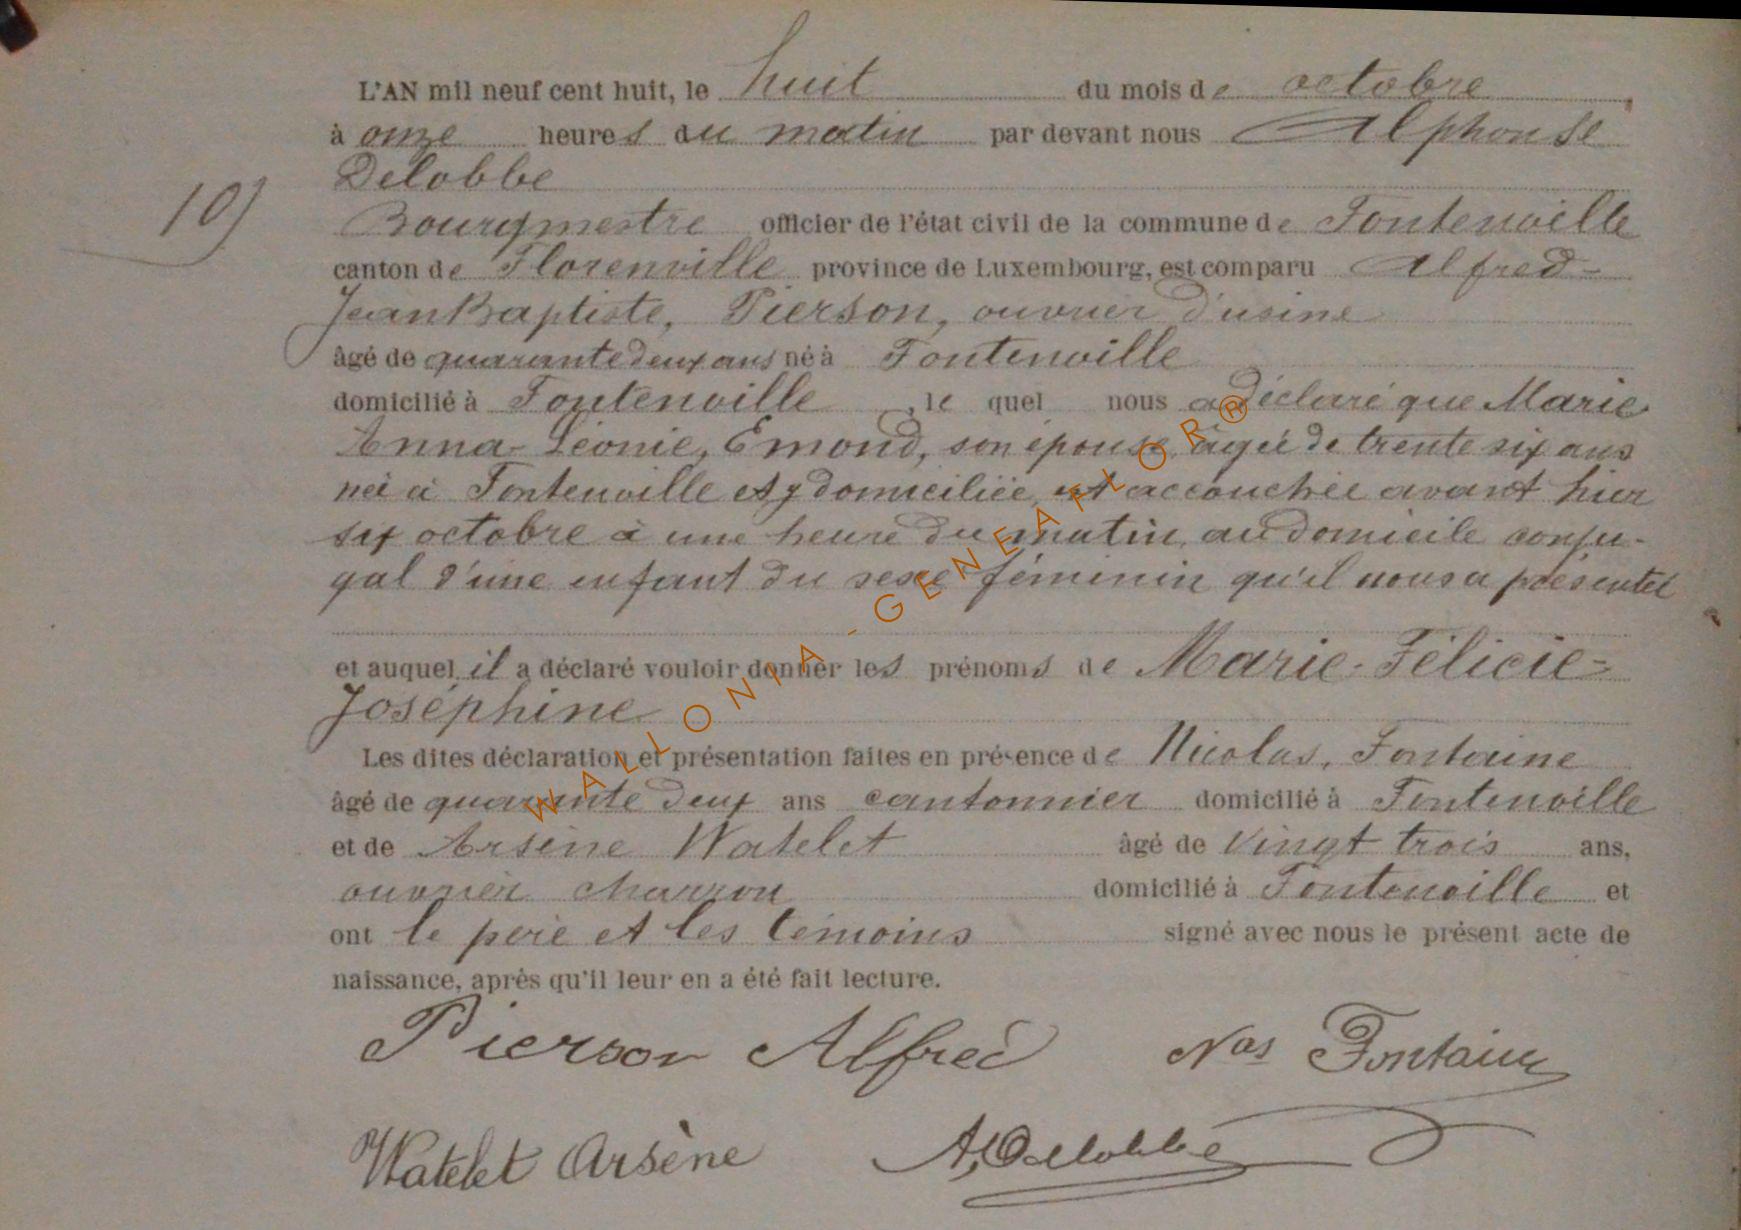 L'AN mil neuf cent huit, le huit du mois de octobre
à onze heures du matin par devant nous Alphonse
Delobbe
10)
Bourgmestre officier de l'état civil de la commune de Fontenoille
canton de Florenville province de Luxembourg, est comparu Alfred-
Jean Baptiste, Pierson, ouvrier d'usine
âgé de quarante deux ans né à Fontenoille
domicilié à Fontenoille , le quel nous a déclaré que Marie
Anna-Léonie, Emond, son épouse, âgée de trente six ans
née à Fontenoille et y domiciliée est accouchée avant hier
six octobre à une heure du matin, au domicile conju-
gal d'une enfant du sexe féminin qu'il nous a présentée
et auquel il a déclaré vouloir donner les prénoms de Marie-Félicie-
Joséphine
Les dites déclaration et présentation faites en présence de Nicolas, Fontaine
âgé de quarante deux ans cantonnier domicilié à Fontenoille
et de Arsène Watelet âgé de vingt trois ans,
ouvrier charron domicilié à Fontenoille et
ont le père et les témoins signé avec nous le présent acte de
naissance, après qu'il leur en a été fait lecture.
Pierson Alfred Nas Fontaine
Watelet Arsène A, Delobbe
WALLONIA - GENEAFLOR®